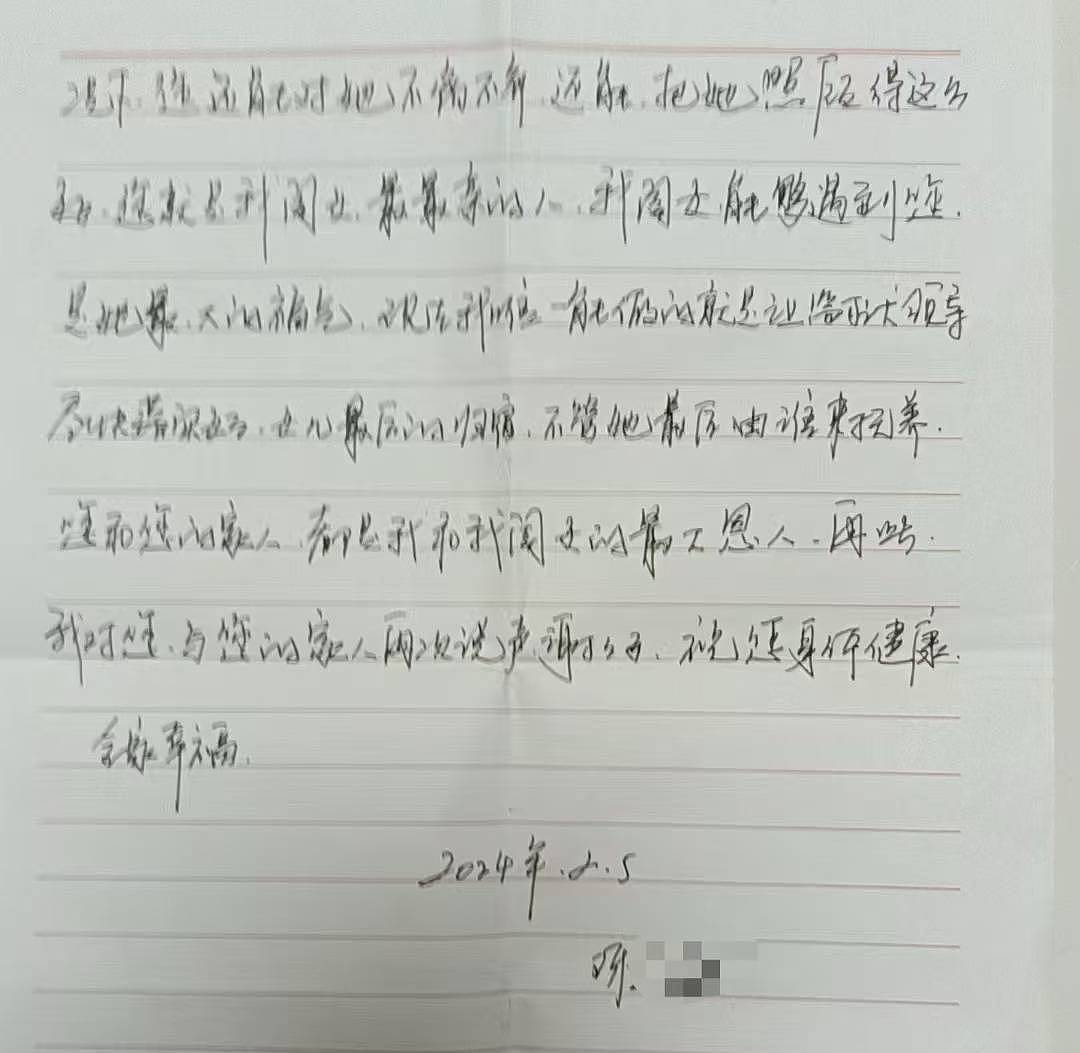 况下,您还能对她不离不弃,还能把她照顾得这么
好,您就是我闺女最最亲的人,我闺女能够遇到您,
是她最大的福气,现在我唯一能做的就是让各级大领导
尽快帮 女儿最后的归宿,不管她最后由谁来抚养,
您和您的家人,都是我和我闺女的最大恩人,再此,
我对您、与您的家人再次说声谢谢,祝您身体健康,
全家幸福.
2024年.2.5
陈.